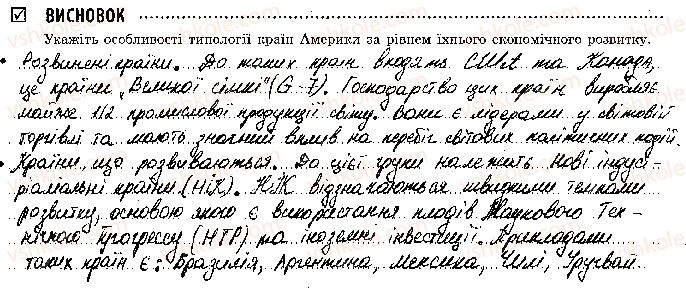 ☑ ВИСНОВОК
Укажіть особливості типології країн Америки за рівнем їхнього економічного розвитку.
• Розвинені країни. До таких країн входять США та Канада,
це країни „Великої сімки" (G-7). Господарство цих країн виробляє
майже 1/2 промислової продукції світу. Вони є лідерами у світовій
торгівлі та мають значний вплив на перебіг світових політичних подій.
• Країни, що розвиваються. До цієї групи належить нові індус-
ріальні країни (НІК). НІК відзначаються швидкими темпами
розвитку, основою якого є використання плодів Наукового Тех-
нічного прогрессу (НТР) та іноземні інвестиції. Прикладами
таких країн є: Бразилія, Аргентина, Мексика, Чилі, Уругвай.